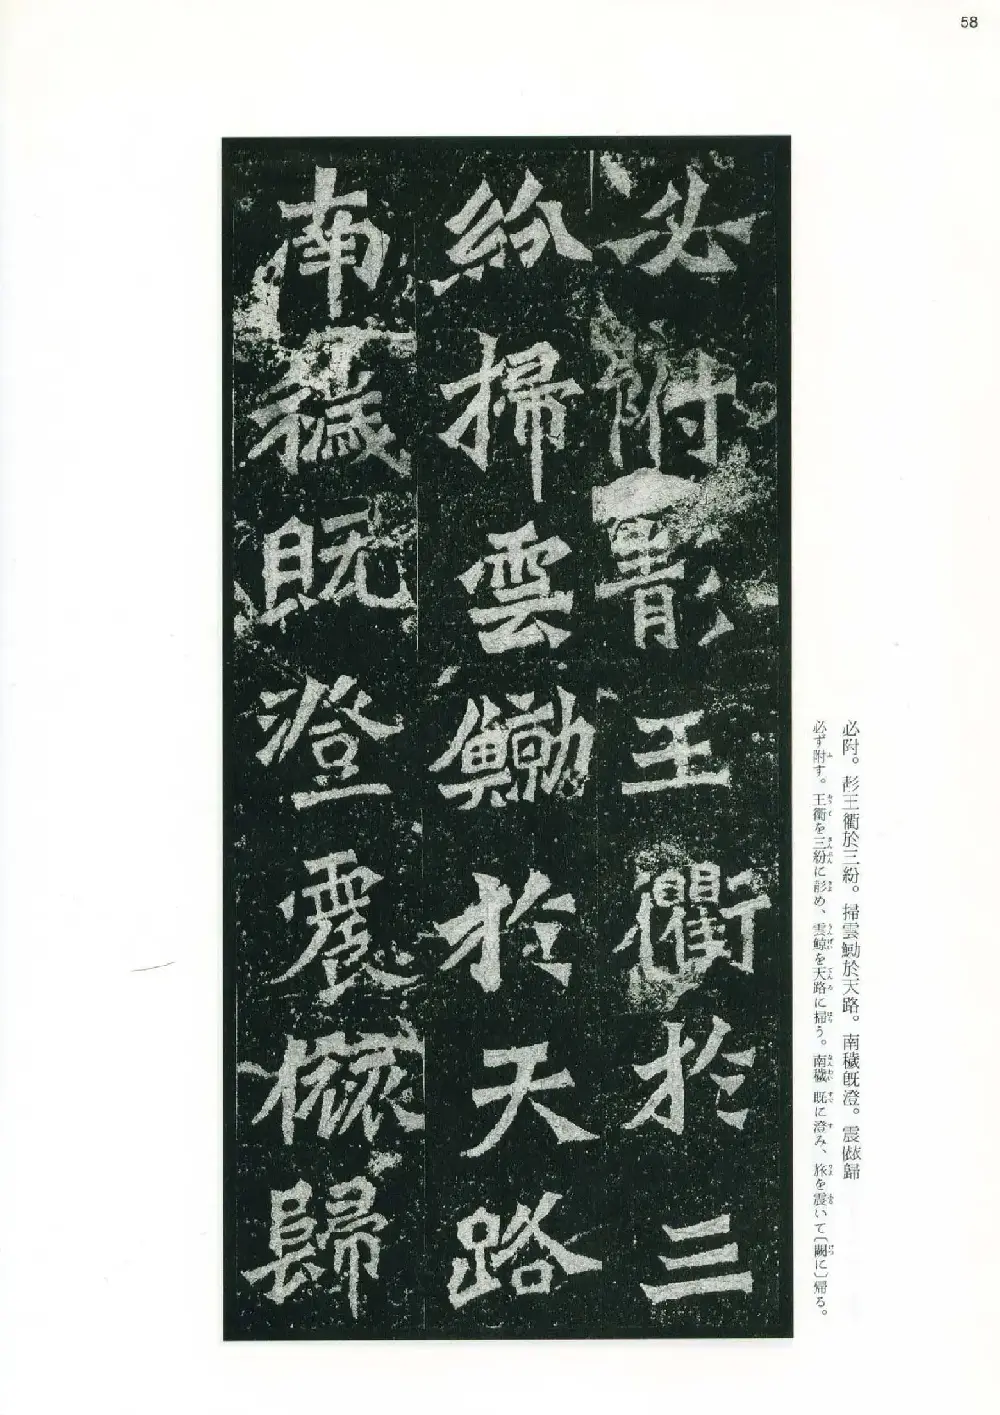 58
必附彯王衢於三
紛掃雲鯏於天路
南穢既澄震旅歸
必附。彯王衢於三紛。掃雲鯏於天路。南穢既澄。震旅歸
必ず附す。王衢を三紛に彯め、雲鯨を天路に掃う。南穢 既に澄み、旅を震いて〔闕に〕帰る。